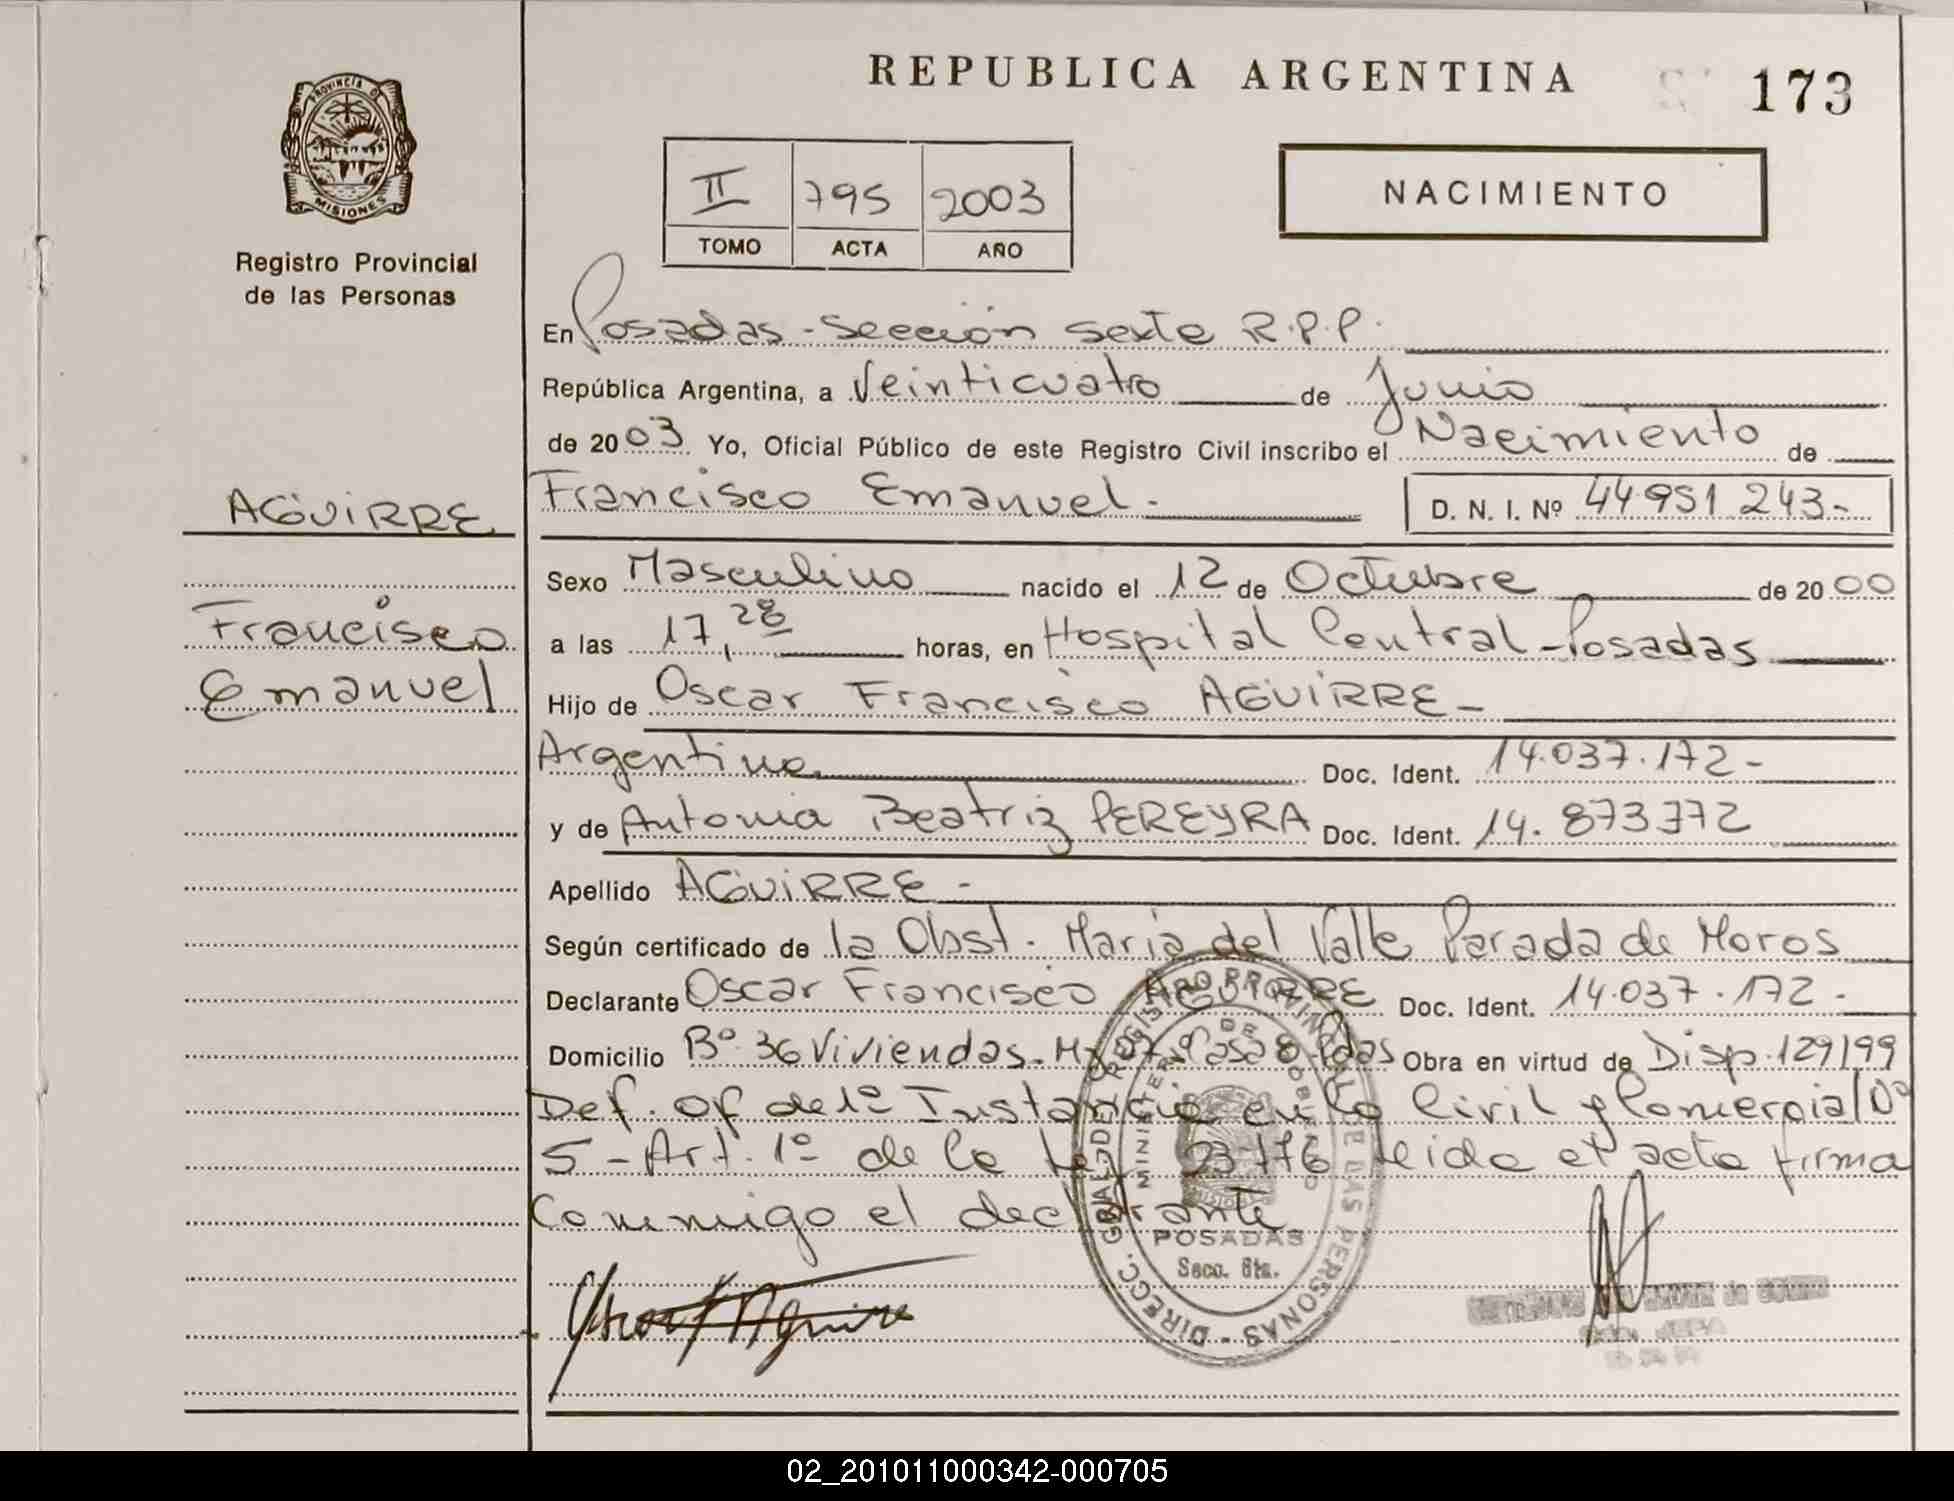 REPUBLICA ARGENTINA
173
PROVINCIA DE
MISIONES
Registro Provincial
de las Personas
II 795 2003
TOMO ACTA AÑO
NACIMIENTO
En Posadas - Sección Sexta R.P.P.
República Argentina, a Veinticuatro de Junio
de 2003 Yo, Oficial Público de este Registro Civil inscribo el Nacimiento de
Francisco Emanuel - D. N. I. Nº 44951243-
AGUIRRE
Francisco
Emanuel
Sexo Masculino nacido el 12 de Octubre de 2000
a las 17,28 horas, en Hospital Central - Posadas
Hijo de Oscar Francisco AGUIRRE -
Argentino Doc. Ident. 14.037.172 -
y de Antonia Beatriz PEREYRA Doc. Ident. 14.873772
Apellido AGUIRRE -
Según certificado de la Obst. Maria del Valle Parada de Moros
Declarante Oscar Francisco AGUIRRE Doc. Ident. 14.037.172 -
Domicilio Bº 36 Viviendas - Casa 8 - Pdas Obra en virtud de Disp. 129/99
Def. Of de 1º Instancia en lo Civil y Comercial Nº
5 - Art. 1º de la Ley 23776 Leida el acta firma
Conmigo el declarante
DIRECC. GRAL. DEL REGISTRO PROVINCIAL DE LAS PERSONAS
MINISTERIO DE GOBIERNO
POSADAS
Secc. 6ta.
02_201011000342-000705